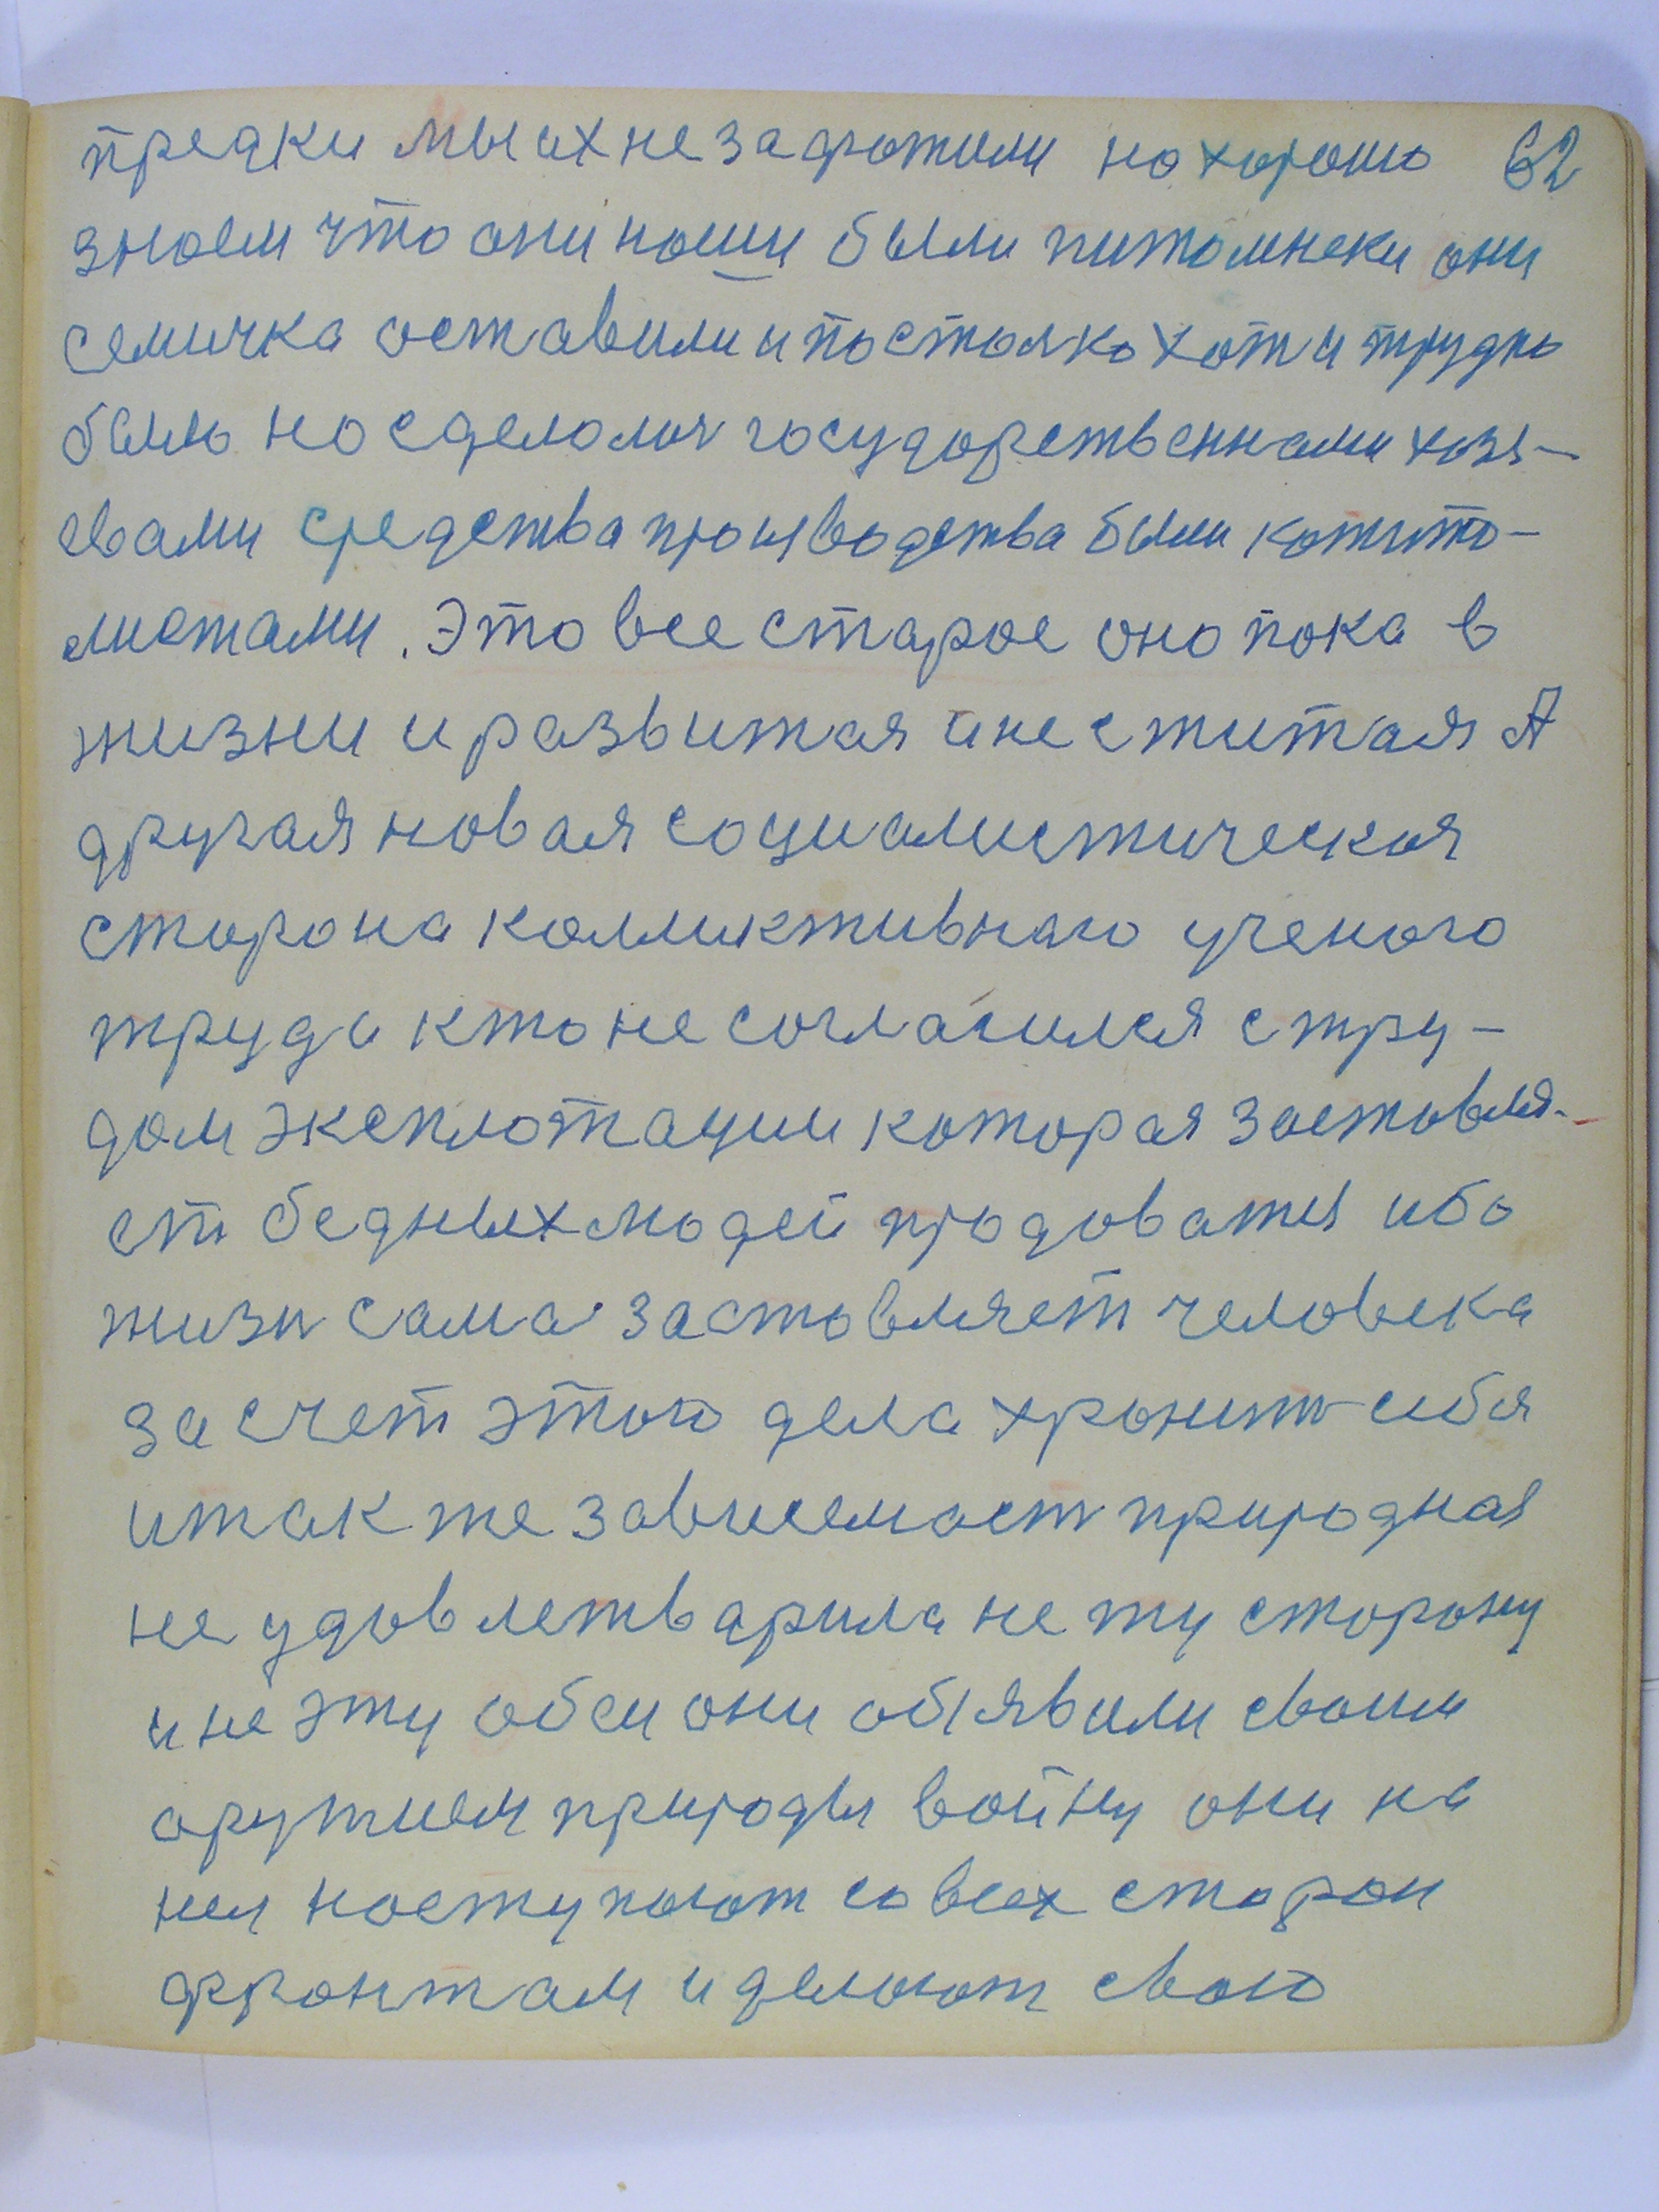 предки мы их не захротили но хорошо 62
знаем что они наши были питомнеки они
семичка оставили и постолко хоть и трудно
было но сделолися государственнами хозя-
евами средства производства были копито-
листами. Это все старое оно пока в
жизни и развитая и не спитая А
другая новая социалистическоя
сторона колликтивнаго ученого
труда кто не согласился с тру-
дом эксплотации которая заставля-
ет бедных людей продоватся ибо
жизн сама заставляет человека
за счет этого дела хронить себя
и так же зависемост природная
не удовлетварила не ту сторону
и не эту обеи они обіявили своим
оружием природы войну они на
нея наступают со всех сторон
фронтам и делают свою